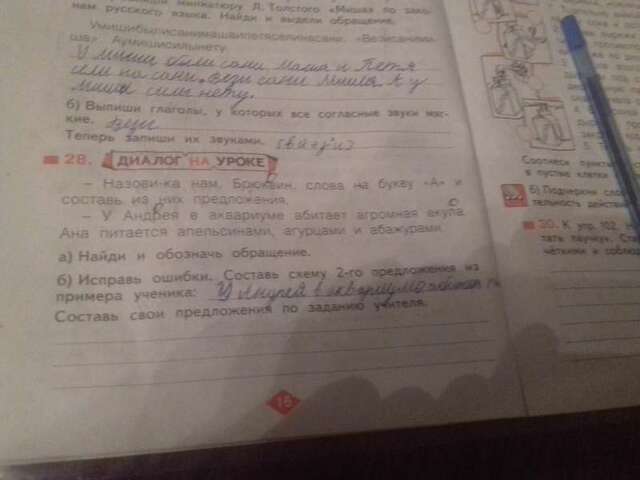 миниатюру Л. Толстого «Миша» по зако-
нам русского языка. Найди и выдели обращение.
Умишибылисанимашаипетяселинасани. «Везисанимиша».
Аумишисильнету.
У Миши были сани. Маша и Петя
сели на сани. вези сани Миша. А у
миши силы нету.
б) Выпиши глаголы, у которых все согласные звуки мяг-
кие. вези
Теперь запиши их звуками.
28. ДИАЛОГ НА УРОКЕ
– Назови-ка нам, Брюквин, слова на букву «А» и
составь из них предложения.
– У Андрея в аквариуме абитает агромная акула.
Ана питается апельсинами, агурцами и абажурами.
а) Найди и обозначь обращение.
б) Исправь ошибки. Составь схему 2-го предложения из
примера ученика: У Андрея в аквариуме
Составь свои предложения по заданию учителя.
15
Соотнеси пункты
в пустые клетки
б) Подчеркни
тельность действ
30. К упр. 102.
тать паучку.
чётками и соблюд